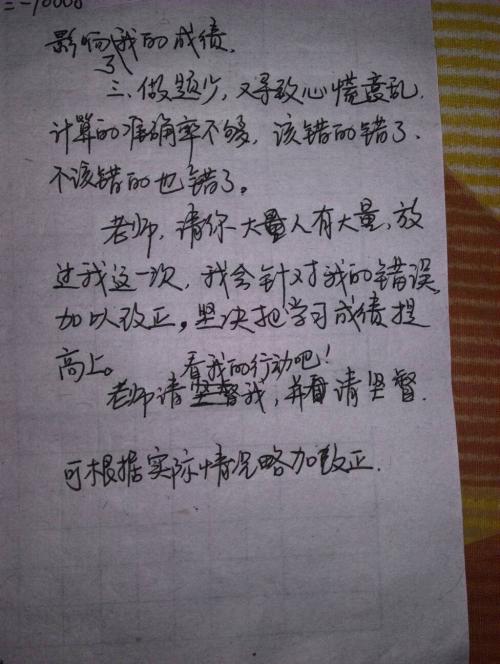 影响了我的成绩.
三、做题少,又导致心慌意乱.
计算的准确率不够,该错的错了、
不该错的也错了。
老师,请你大量人有大量,放
过我这一次,我会针对我的错误
加以改正。坚决把学习成绩提
高上。 看我的行动吧!
老师请坚督我,并请坚督.
可根据实际情况略加改正.